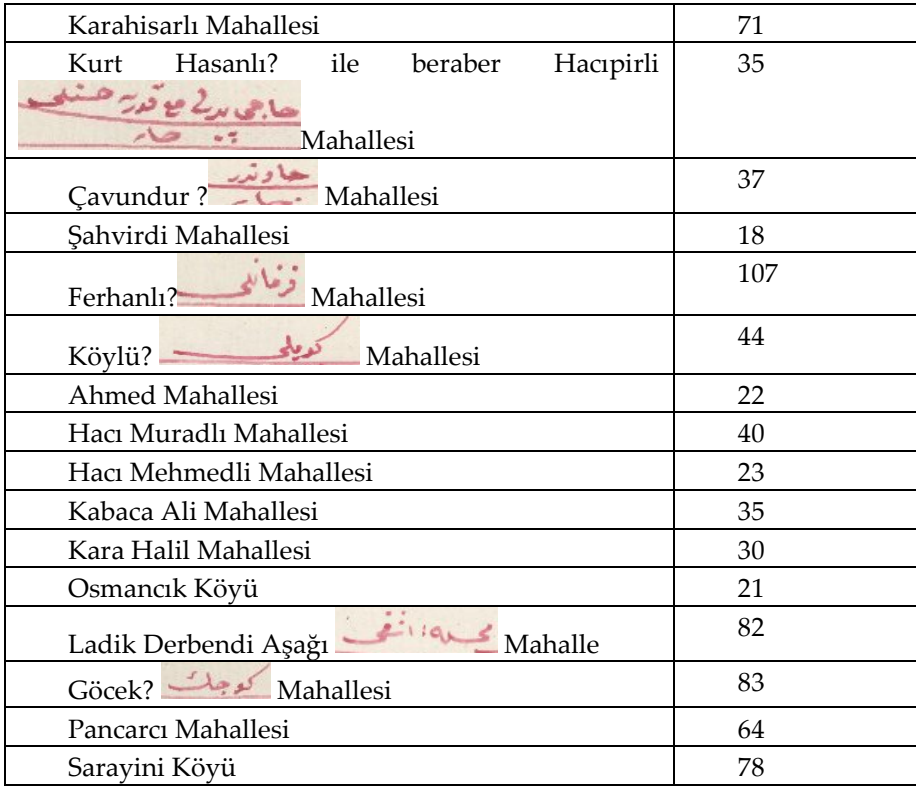 Karahisarlı Mahallesi 71
Kurt Hasanlı? ile beraber Hacıpirli 35
حاجی پیرلی مع قورد حسنلی
Mahallesi
Çavundur ? جاوندر Mahallesi 37
Şahvirdi Mahallesi 18
Ferhanlı? فرخانلی Mahallesi 107
Köylü? كویلی Mahallesi 44
Ahmed Mahallesi 22
Hacı Muradlı Mahallesi 40
Hacı Mehmedli Mahallesi 23
Kabaca Ali Mahallesi 35
Kara Halil Mahallesi 30
Osmancık Köyü 21
Ladik Derbendi Aşağı محلهٔ اشغی Mahalle 82
Göcek? كوجك Mahallesi 83
Pancarcı Mahallesi 64
Sarayini Köyü 78